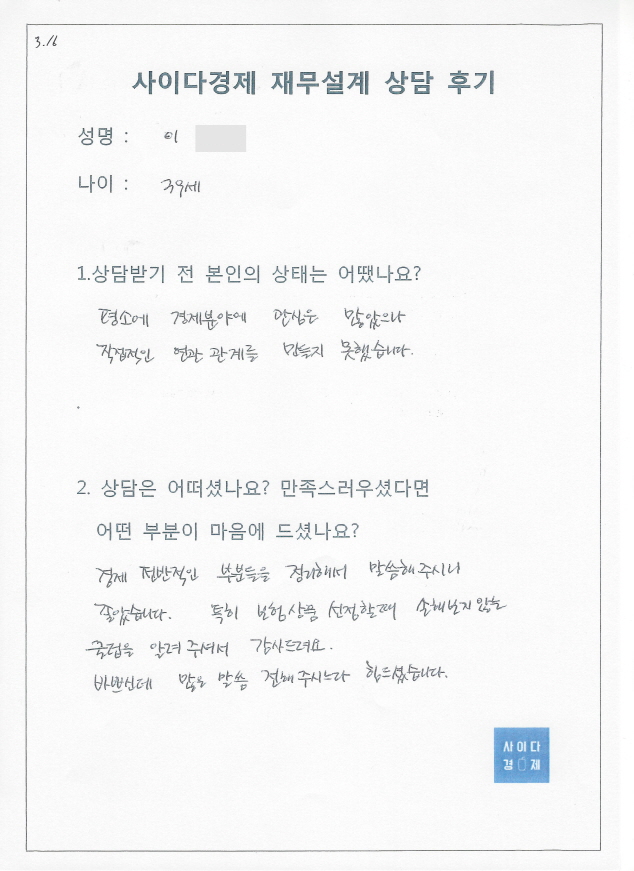 3.16
사이다경제 재무설계 상담 후기
성명 : 이
나이 : 39세
1.상담받기 전 본인의 상태는 어땠나요?
평소에 경제분야에 관심은 많았으나
직접적인 연관 관계를 만들지 못했습니다.
2. 상담은 어떠셨나요? 만족스러우셨다면
어떤 부분이 마음에 드셨나요?
경제 전반적인 부분들을 정리해서 말씀해주시니
좋았습니다. 특히 보험상품 선정할때 손해보지 않는
꿀팁을 알려 주셔서 감사드려요.
바쁘신데 많은 말씀 전해주시느라 힘드셨습니다.
사이다
경제